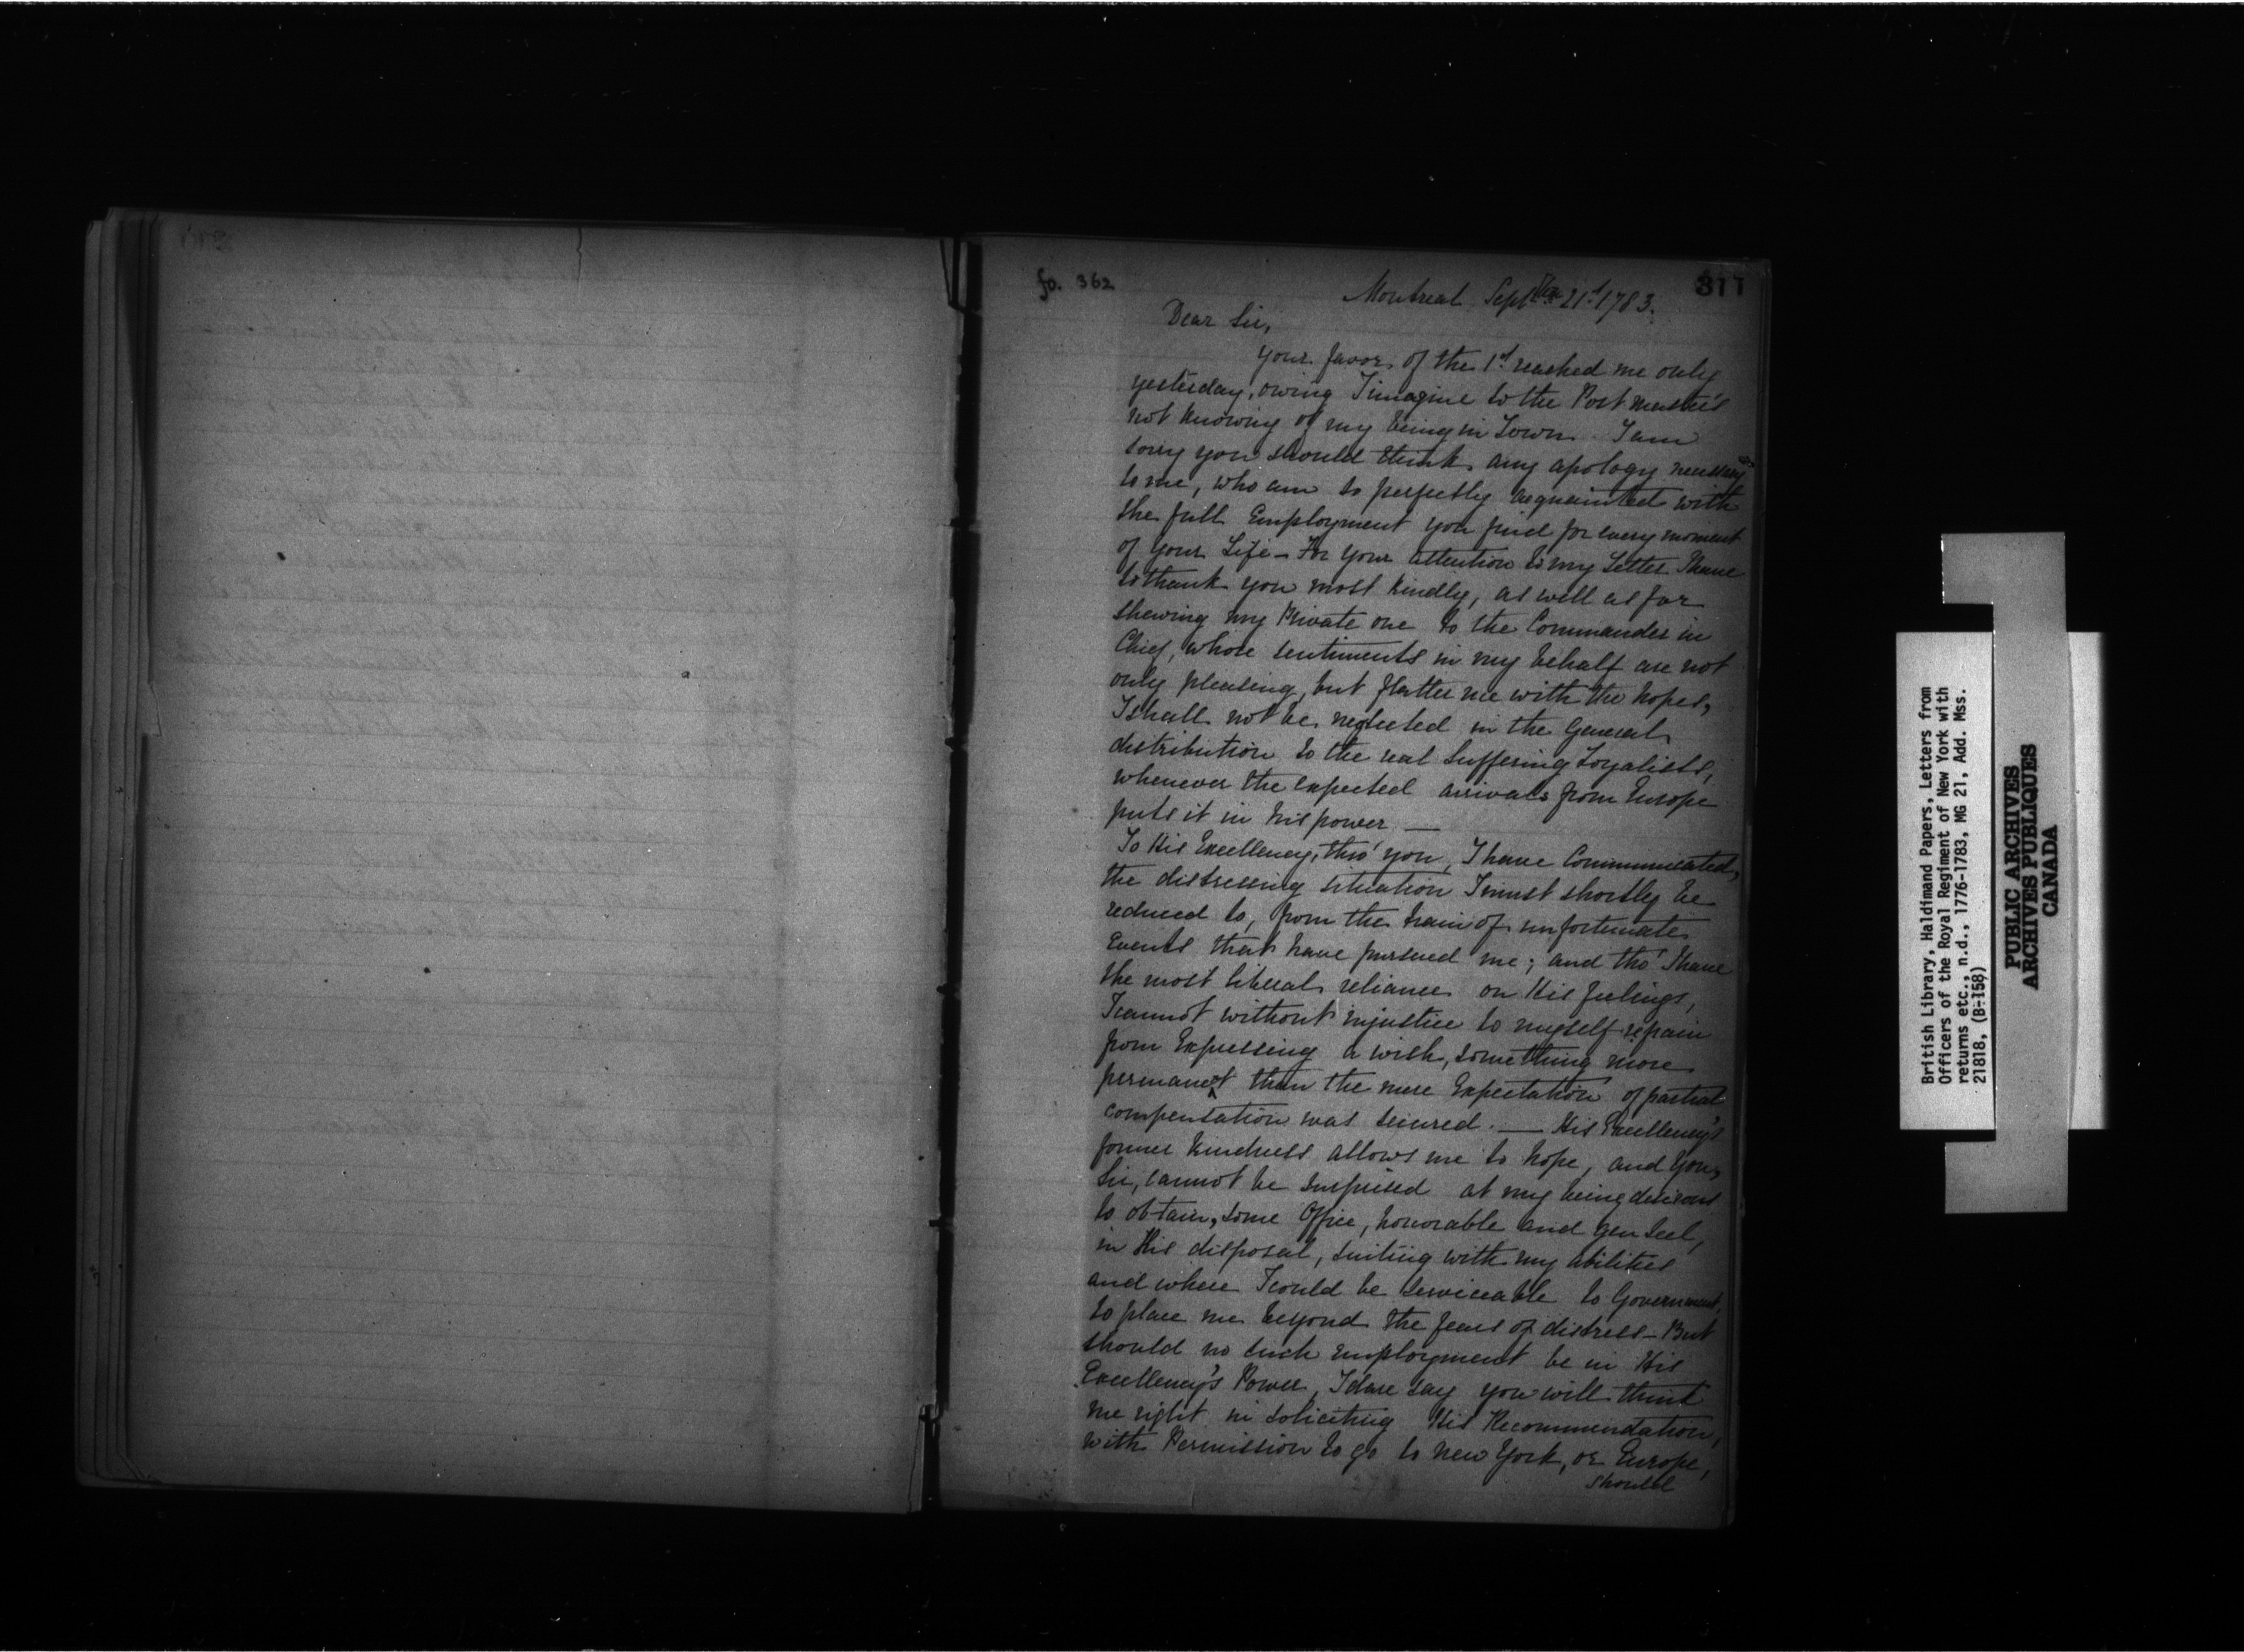 311
fo. 362
Montreal Sept.ber 21st 1783.
Dear Sir,
Your favor of the 1st reached me only
yesterday, owing I imagine to the Post master's
not knowing of my being in Town. I am
sorry you should think any apology necessary
to me, who am so perfectly acquainted with
the full Employment you find for every moment
of your Life – For your attention to my Letter I have
to thank you most kindly, as well as for
shewing my Private one to the Commander in
Chief, whose sentiments in my behalf are not
only pleasing, but flatter me with the hopes,
I shall not be neglected in the General
distribution to the real Suffering Loyalists,
whenever the expected arrivals from Europe
puts it in his power. —
To His Excellency, thro' you, I have Communicated,
the distressing situation I must shortly be
reduced to, from the train of unfortunate
Events that have pursued me; and tho' I have
the most liberal reliance on His feelings,
I cannot without injustice to myself refrain
from Expressing a wish, something more
permanent than the mere Expectation of partial
compensation was secured. — His Excellency's
former kindness allows me to hope, and you,
Sir, cannot be surprised at my being desirous
to obtain, some Office, honorable and genteel,
in His disposal, suiting with my abilities
and where I could be serviceable to Government,
to place me beyond the fears of distress – But
should no such employment be in His
Excellency's Power, I dare say you will think
me right in soliciting His Recommendation,
with Permission to go to New York, or Europe,
should
British Library, Haldimand Papers, Letters from
Officers of the Royal Regiment of New York with
returns etc., n.d., 1776-1783, MG 21, Add. Mss.
21818, (B-158)
PUBLIC ARCHIVES
ARCHIVES PUBLIQUES
CANADA